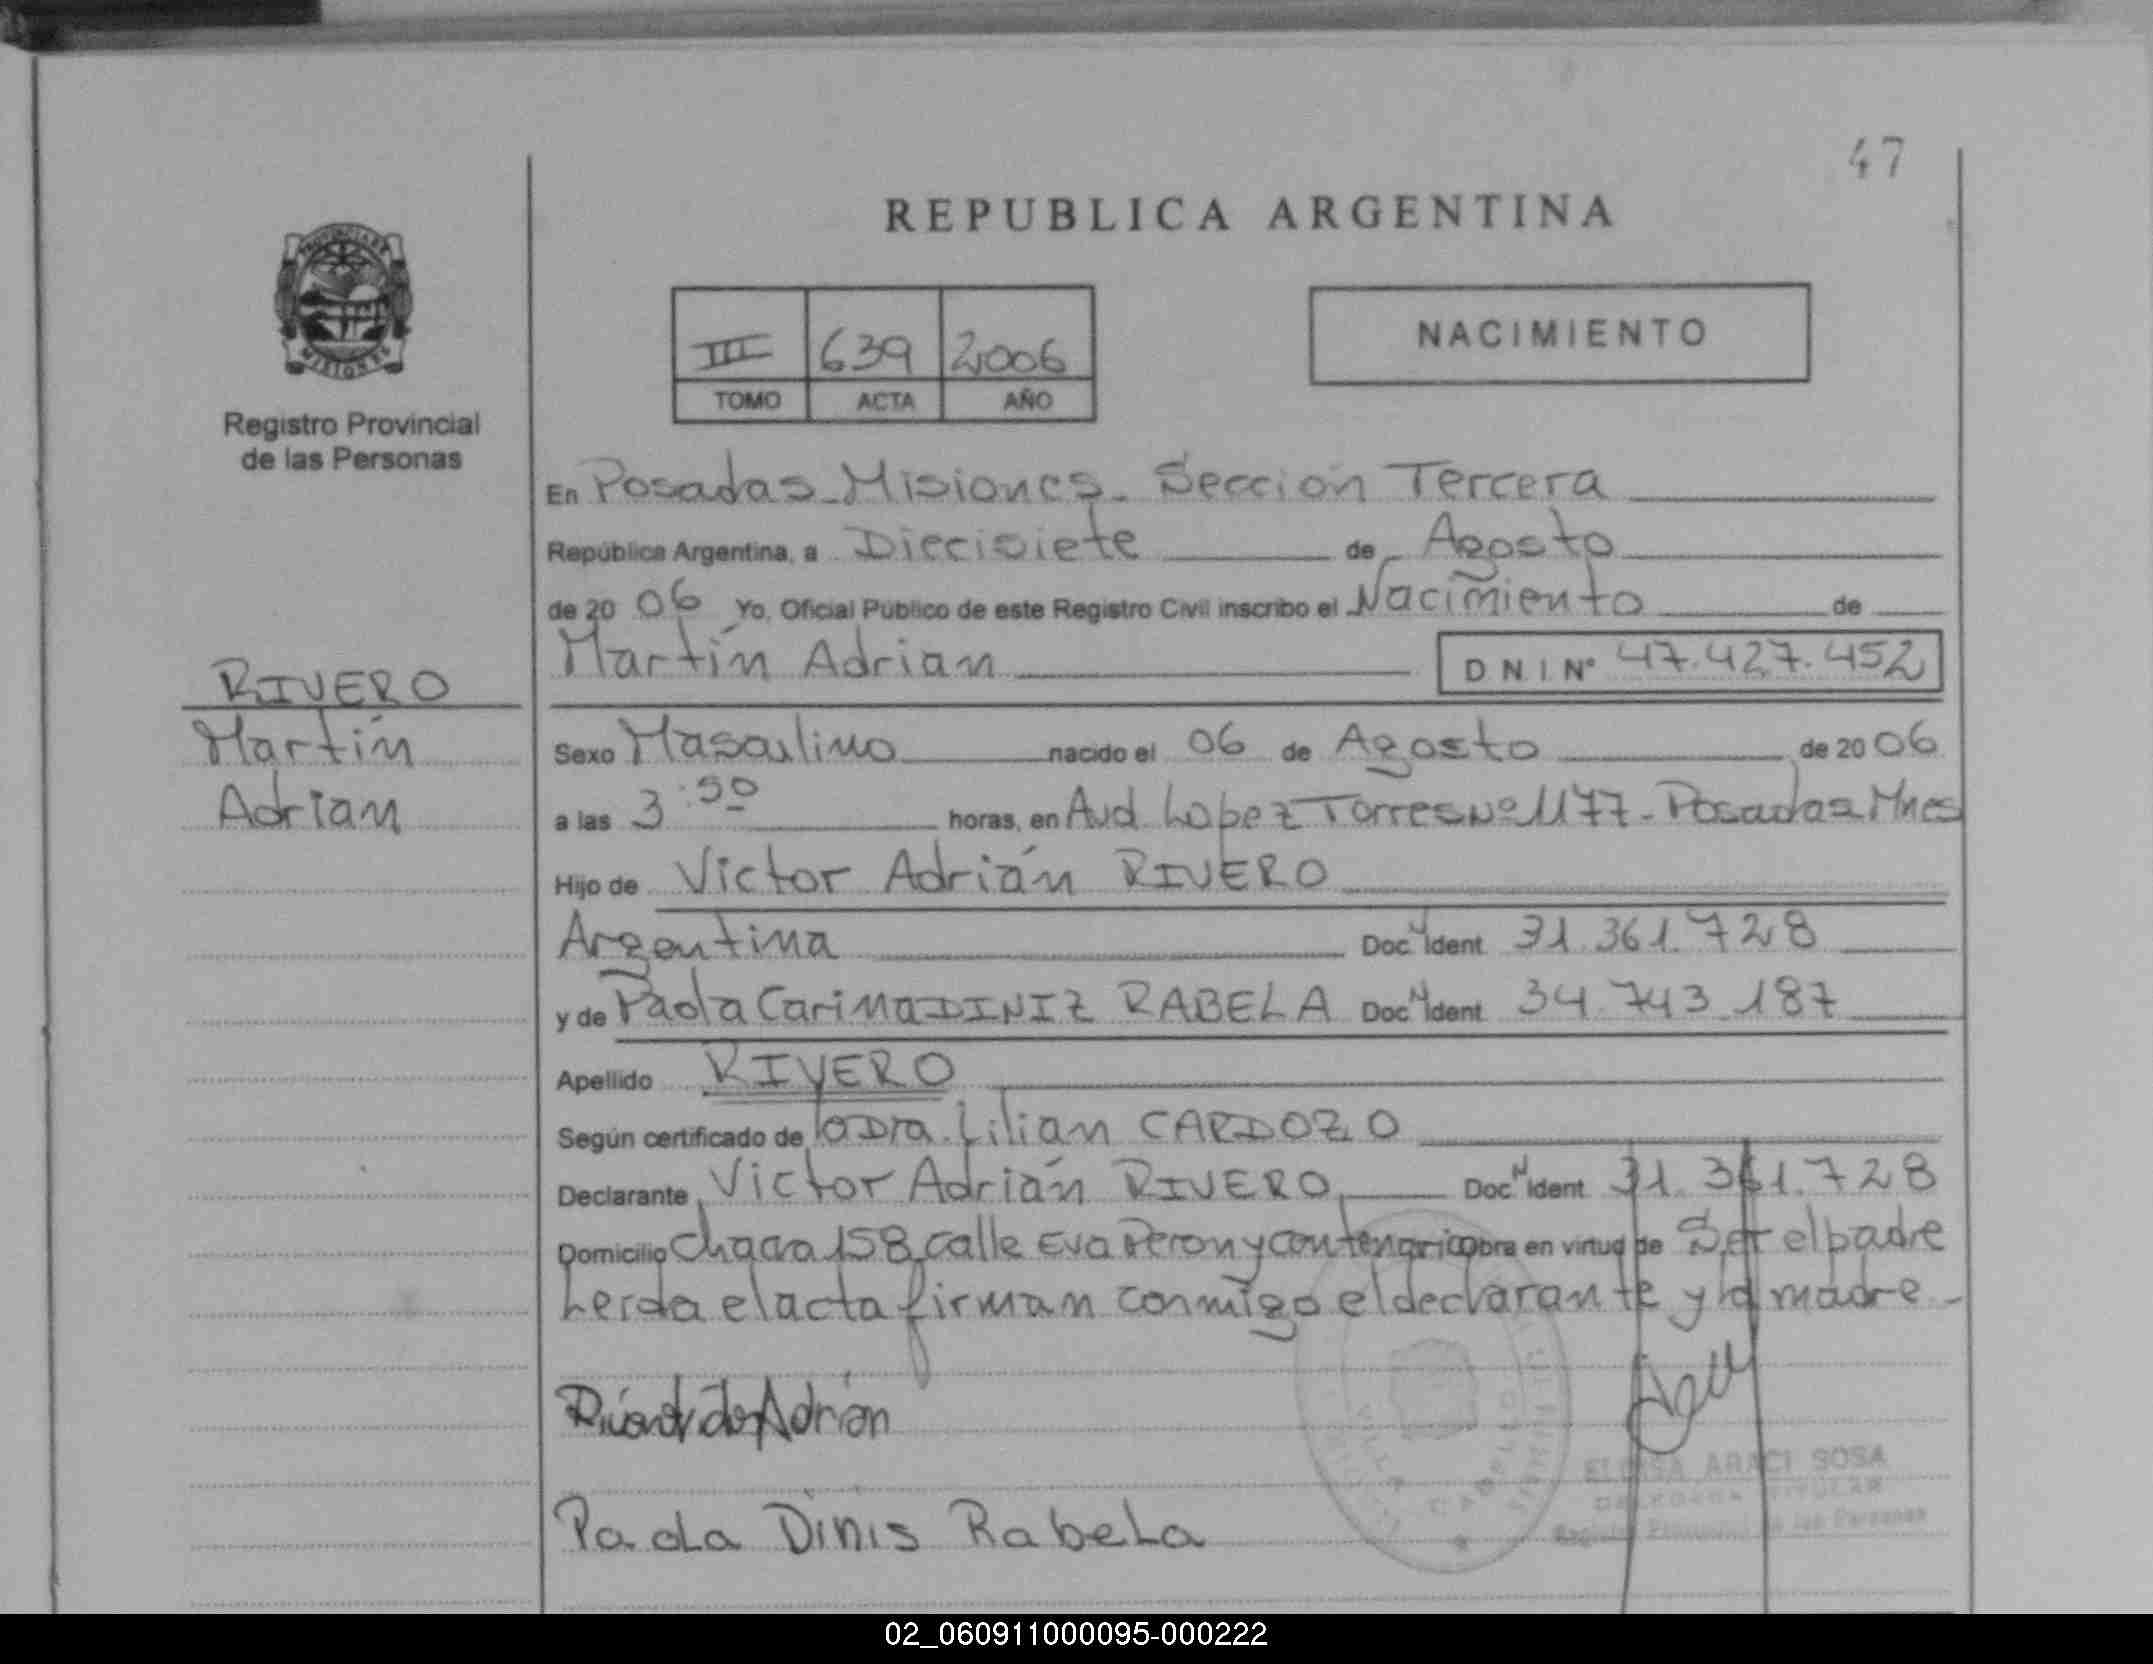 47
REPUBLICA ARGENTINA
PROVINCIA DE
MISIONES
Registro Provincial
de las Personas
III 639 2006
TOMO ACTA AÑO
NACIMIENTO
En Posadas - Misiones - Sección Tercera
República Argentina, a Diecisiete de Agosto
de 20 06 Yo, Oficial Público de este Registro Civil inscribo el Nacimiento de
Martín Adrian D N I Nº 47.427.452
RIVERO
Martín
Adrian
Sexo Masculino nacido el 06 de Agosto de 20 06
a las 3:50 horas, en Avd. Lopez Torres Nº 1177 - Posadas Mnes
Hijo de Victor Adrián RIVERO
Argentina Doc N Ident 31.361.728
y de Paola Carina DINIZ RABELA Doc N Ident 34.743.187
Apellido RIVERO
Según certificado de la Dra. Lilian CARDOZO
Declarante Victor Adrián RIVERO Doc N Ident 31.361.728
Domicilio Chacra 158, calle Eva Peron y Centenario obra en virtud de Ser el padre
Leida el acta firman conmigo el declarante y la madre -
Adrián
Paola Dinis Rabela
ELOISA ARACI SOSA
DELEGADA TITULAR
Registro Provincial de las Personas
02_060911000095-000222